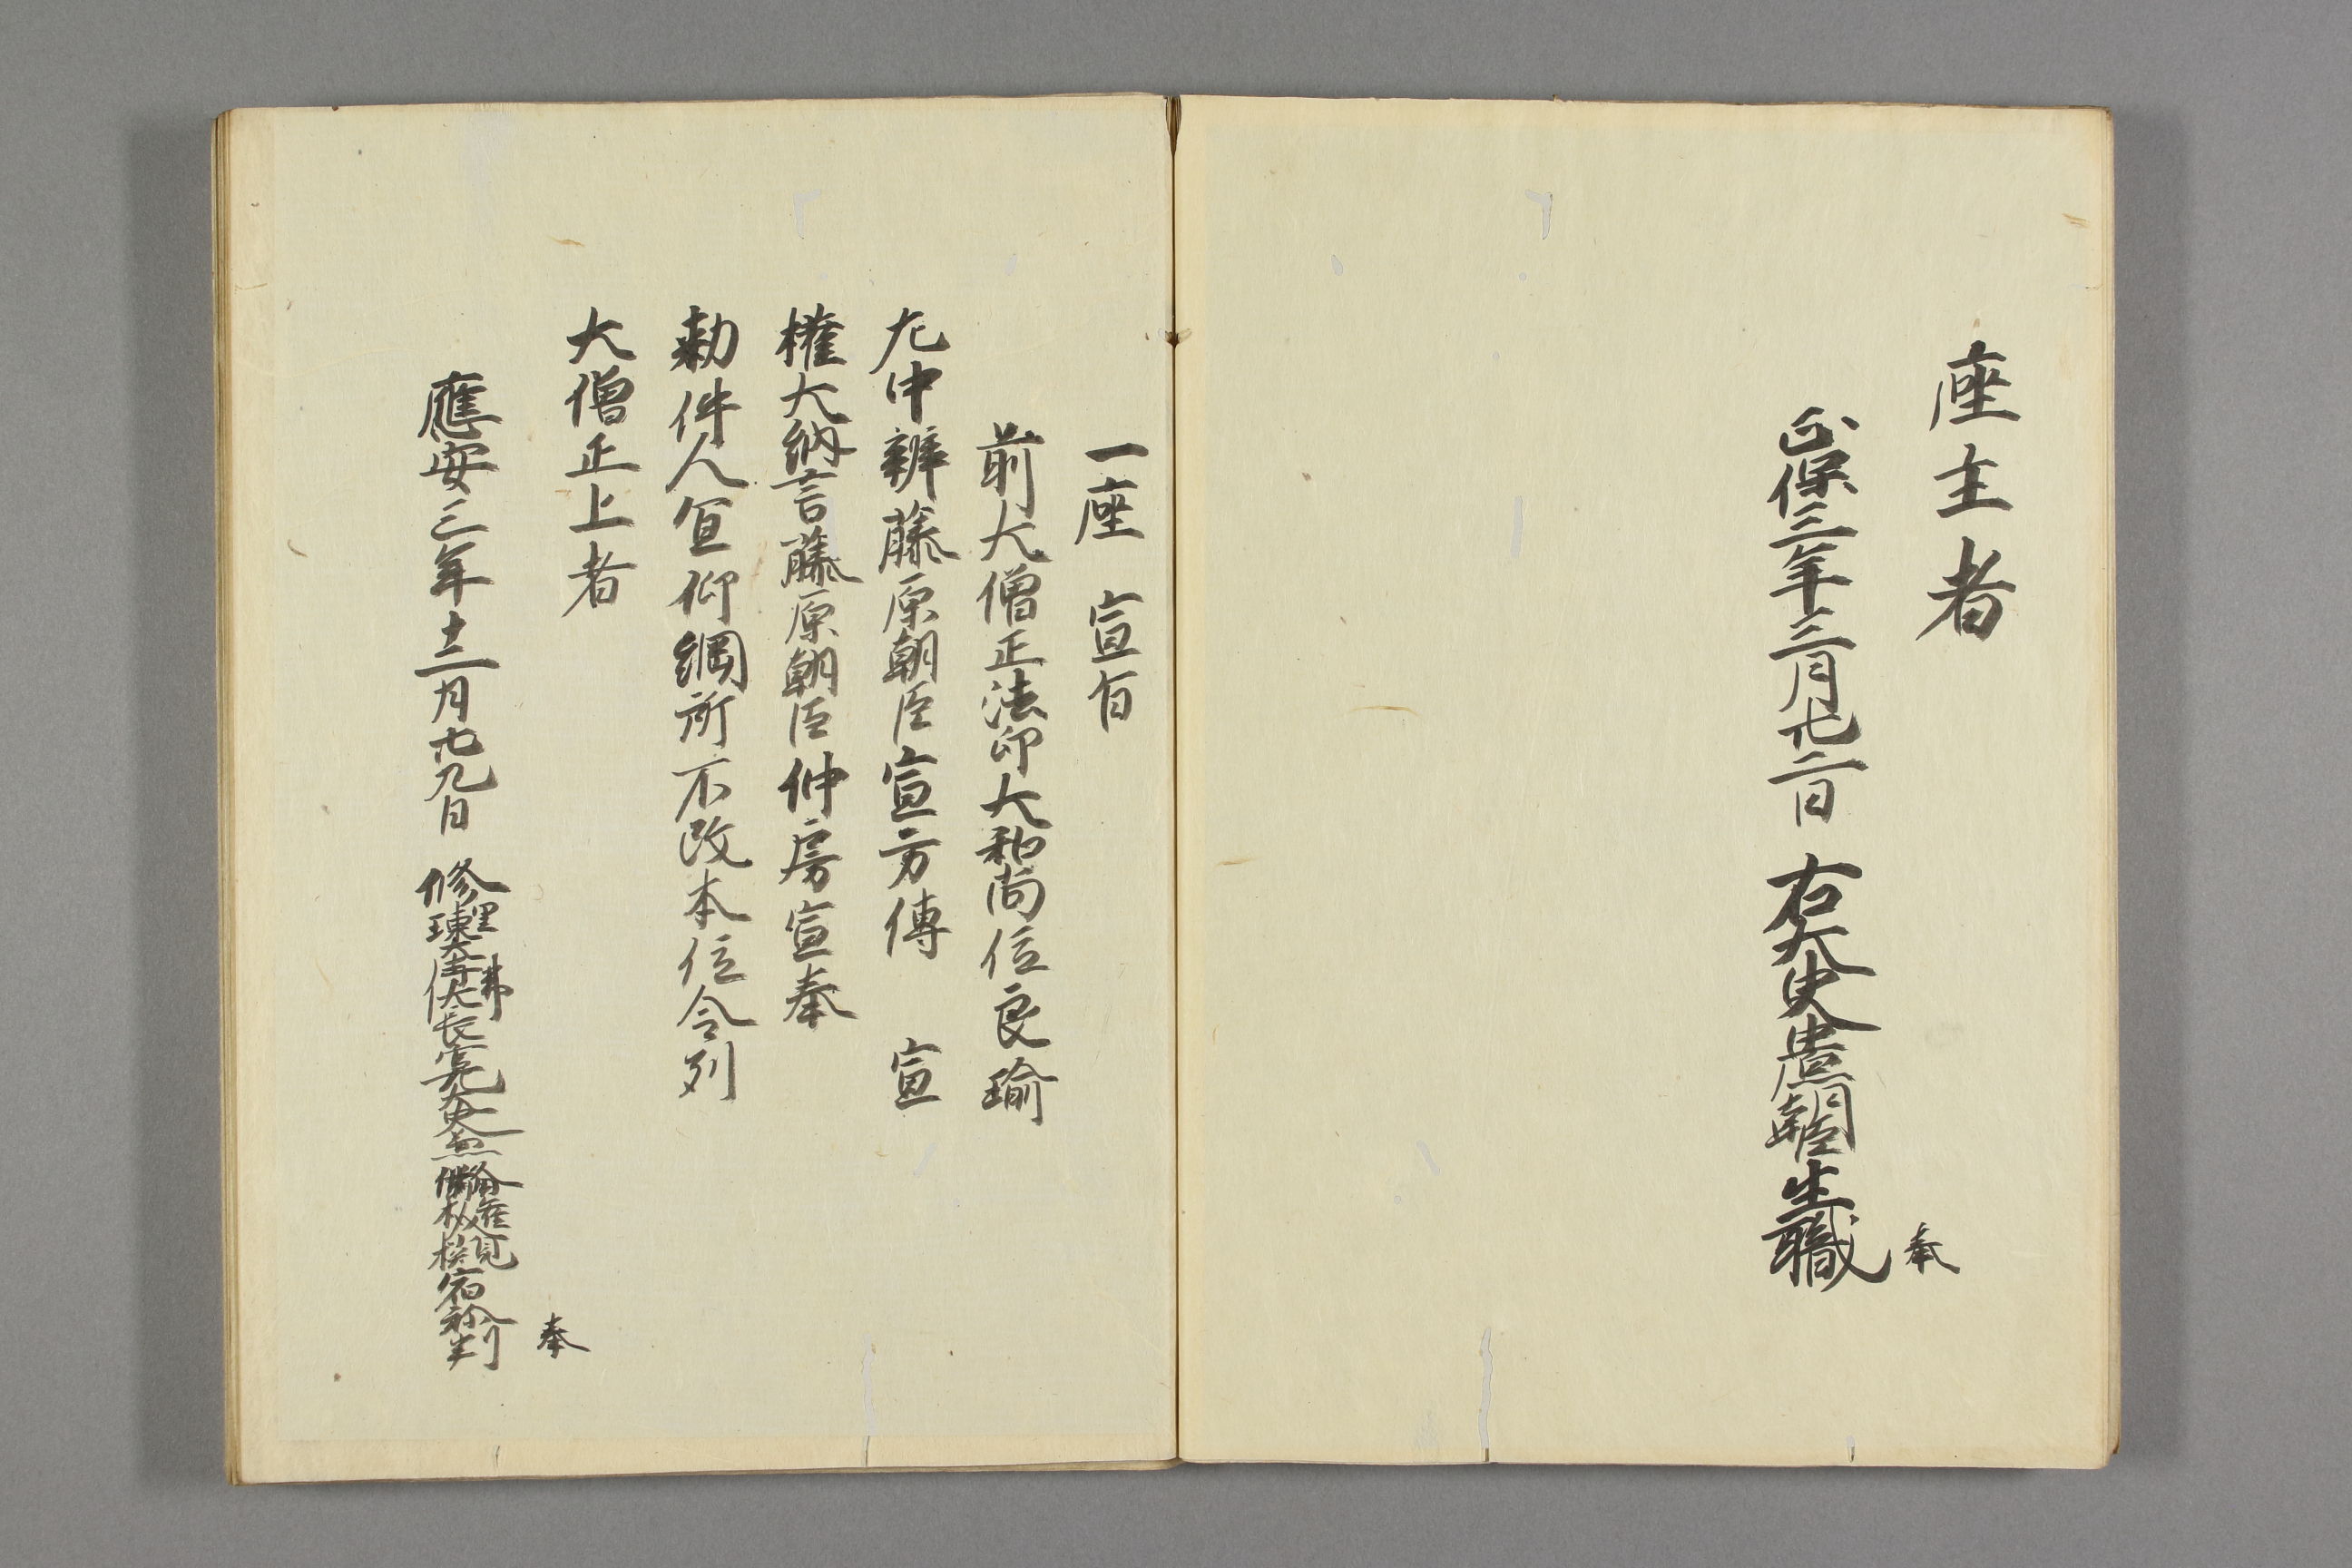 座主者
正保三年三月廿二日 右大史 朝臣 生職
奉
一座 宣旨
前大僧正法印大和尚位良瑜
左中辨藤原朝臣宣方傳 宣
権大納言藤原朝臣仲房宣奉
勅件人宜仰綱所不改本位令列
大僧正上者
應安三年十二月廿九日 修理東大寺大佛長官 大史 奉